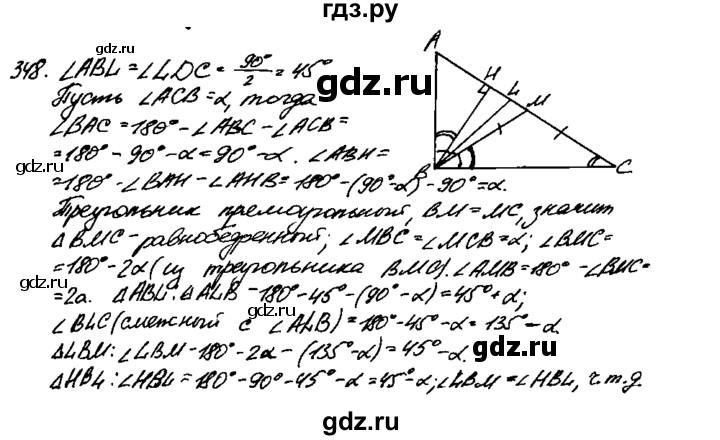 гдз.ру
348. ∠ABL = ∠LDC = 90°/2 = 45°
Пусть ∠ACB = α, тогда
∠BAC = 180° - ∠ABC - ∠ACB =
= 180° - 90° - α = 90° - α. ∠ABH =
= 180° - ∠BAH - ∠AHB = 180° - (90° - α) - 90° = α.
Треугольник прямоугольный, BM = MC, значит
ΔBMC - равнобедренный; ∠MBC = ∠MCB = α; ∠BMC =
= 180° - 2α (из треугольника BMC). ∠AMB = 180° - ∠BMC =
= 2α. ΔABL: ∠ALB = 180° - 45° - (90° - α) = 45° + α;
∠BLC (смежный с ∠ALB) = 180° - 45° - α = 135° - α
ΔLBM: ∠LBM = 180° - 2α - (135° - α) = 45° - α.
ΔHBL: ∠HBL = 180° - 90° - 45° - α = 45° - α; ∠LBM = ∠HBL, ч.т.д.
A
H
L
M
B
C
gdz.ru
gdz.ru
gdz.ru
gdz.ru
gdz.ru
gdz.ru
gdz.ru
gdz.ru